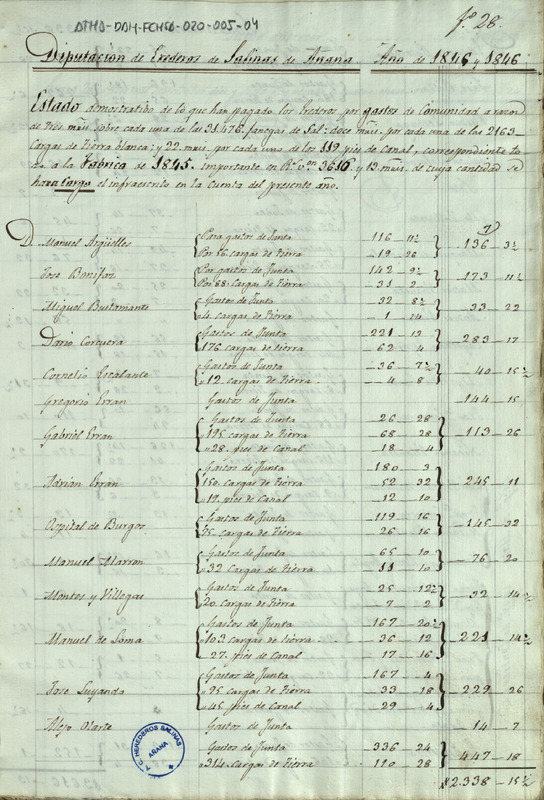 ATHA-DAH-FCHSA-020-005-04
Fº 28.
Diputacion de Erederos de Salinas de Añana Año de 1846 y 1846
Estado demostratibo de lo que han pagado los Erederos por gastos de Comunidad a racon
de tres mrs. sobre cada una de las 31.476. fanegas de Sal: doce mrs. por cada una de las 2163
Cargas de tierra blanca: y 22. mrs. por cada uno de los 119 pies de Canal, correspondiente to
do a la Fabrica de 1845. importante en Rs. von 3616 y 13. mrs. de cuya cantidad se
hara Cargo el infraescrito en la Cuenta del presente ano.
D. Manuel Argüelles Para gastos de Junta 116 11½
Por 56 cargas de tierra 19 26 136 3½
Jose Bonifaz Por gastos de Junta 142 9½
Por 88 Cargas de tierra 31 2 173 11½
Miguel Bustamante Gastos de Junta 32 8½
4. cargas de tierra 1 14 33 22
Dario Corcuera Gastos de Junta 221 13
176 cargas de tierra 62 4 283 17
Cornelio Escalante Gastos de Junta 36 7½
12. cargas de tierra 4 8 40 15½
Gregorio Erran Gastos de Junta 144 15
Gastos de Junta 26 28
Gabriel Erran 195 cargas de tierra 68 28 113 26
28. pies de Canal 18 4
Gastos de Junta 180 3
Adrian Erran 150. cargas de tierra 52 32 245 11
19. pies de Canal 12 10
Ospital de Burgos Gastos de Junta 119 16
75. cargas de tierra 26 16 145 32
Manuel Marron Gastos de Junta 65 10
32 Cargas de tierra 11 10 76 20
Montes y Villegas Gastos de Junta 25 12½
20. cargas de tierra 7 2 32 14½
Gastos de Junta 167 20½
Manuel de Loma 103 cargas de tierra 36 12 221 14½
27. pies de Canal 17 16
Gastos de Junta 167 4
Jose Luyando 95 cargas de tierra 33 18 229 26
45 pies de Canal 29 4
Alejo Olarte Gastos de Junta 14 7
Gastos de Junta 336 24
314 cargas de tierra 110 28 447 18
2.338 15½
T.C. HEREDEROS SALINAS
AÑANA